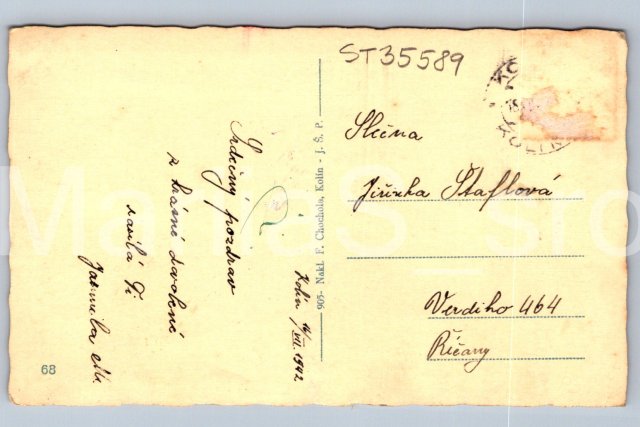 ST35589
Slečna
Jiřinka Štaflová
Verdiho 464
Říčany
Srdečný pozdrav
z krásné dovolené
zasílá Ti
Jarmila
Kolín 14/VII. 1942
905- Nakl. F. Chochola, Kolín - J. Š. P.
68
KOLÍN